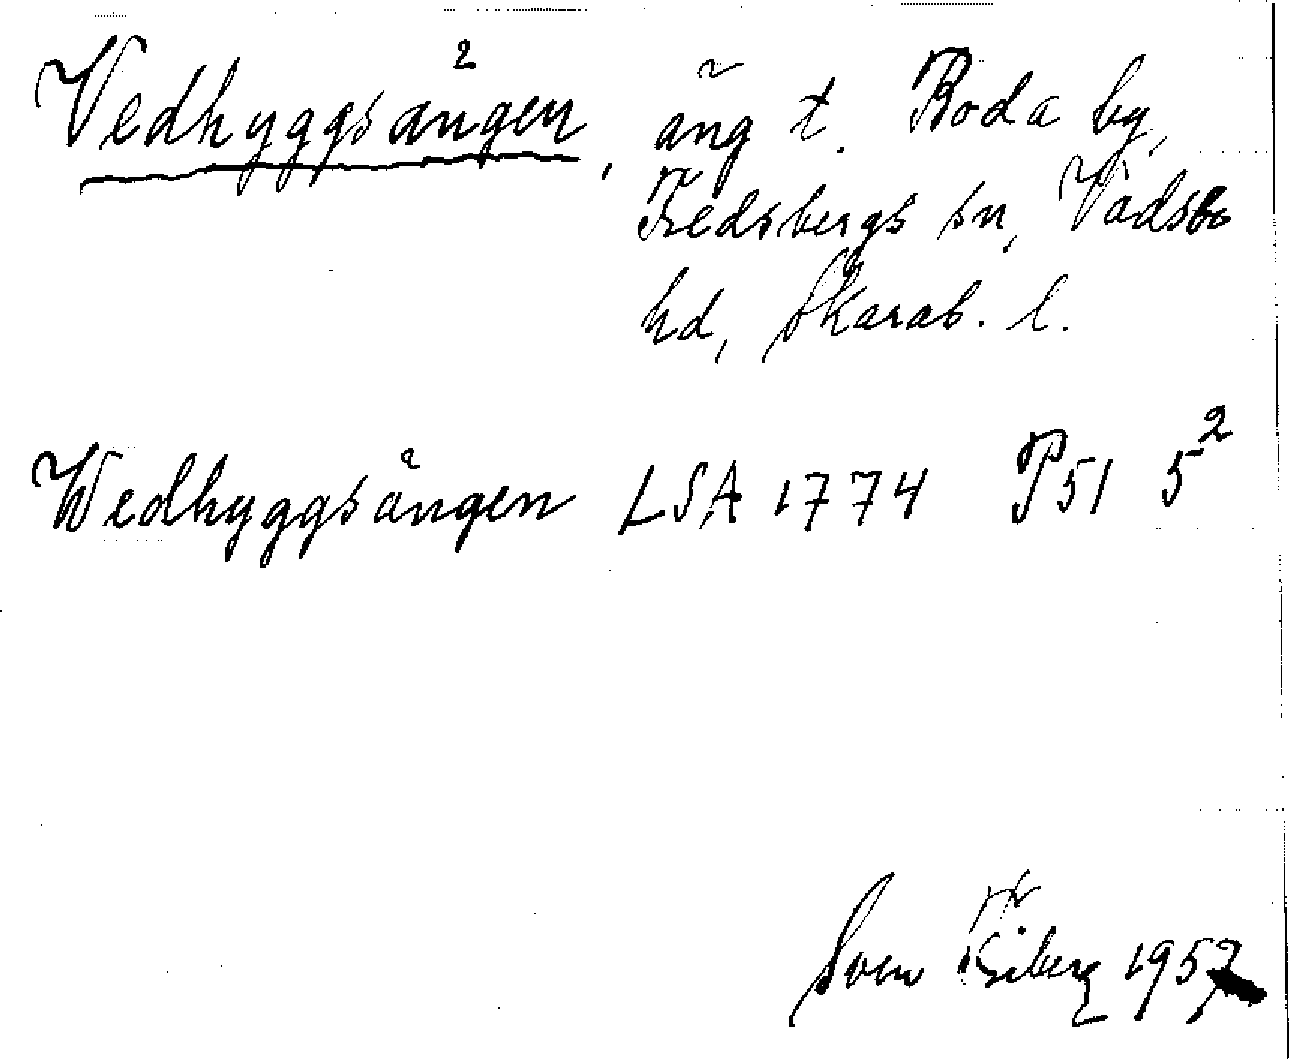 Vedhyggsängen, äng t. Roda by,
Fredsbergs sn, Vadsbo
hd, Skarab. l.
Wedhyggsängen LSA 1774 P51 5²
Sven Friberg 1957